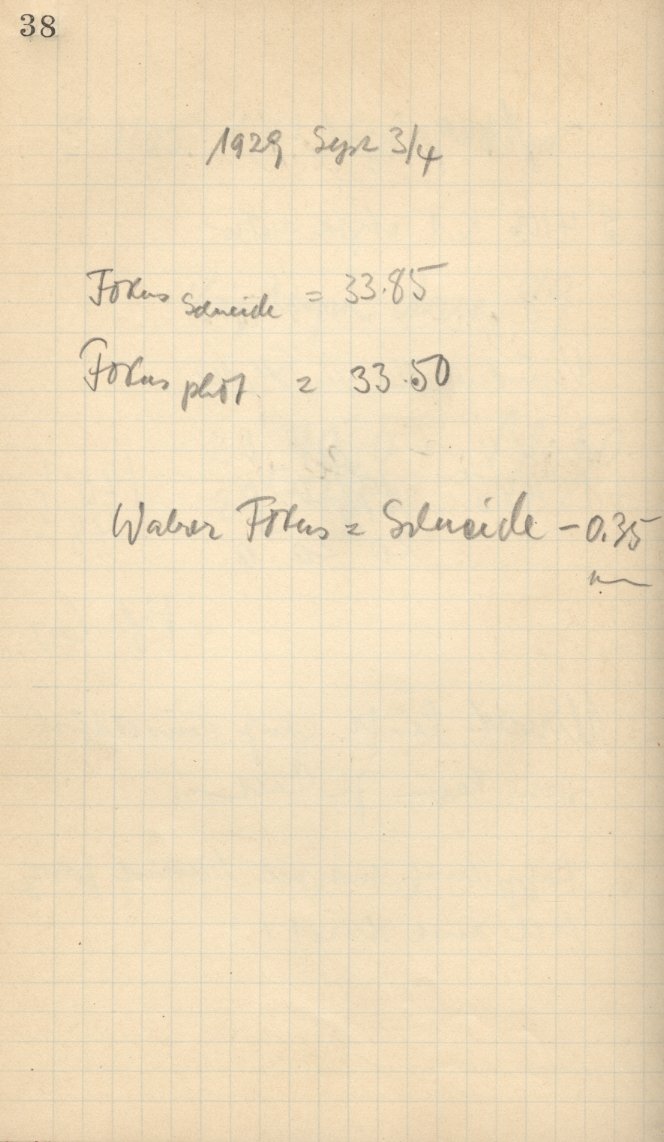 38
1929 Sept 3/4
Fokus Schneide = 33.85
Fokus phot. = 33.50
Wahrer Fokus = Schneide - 0.35